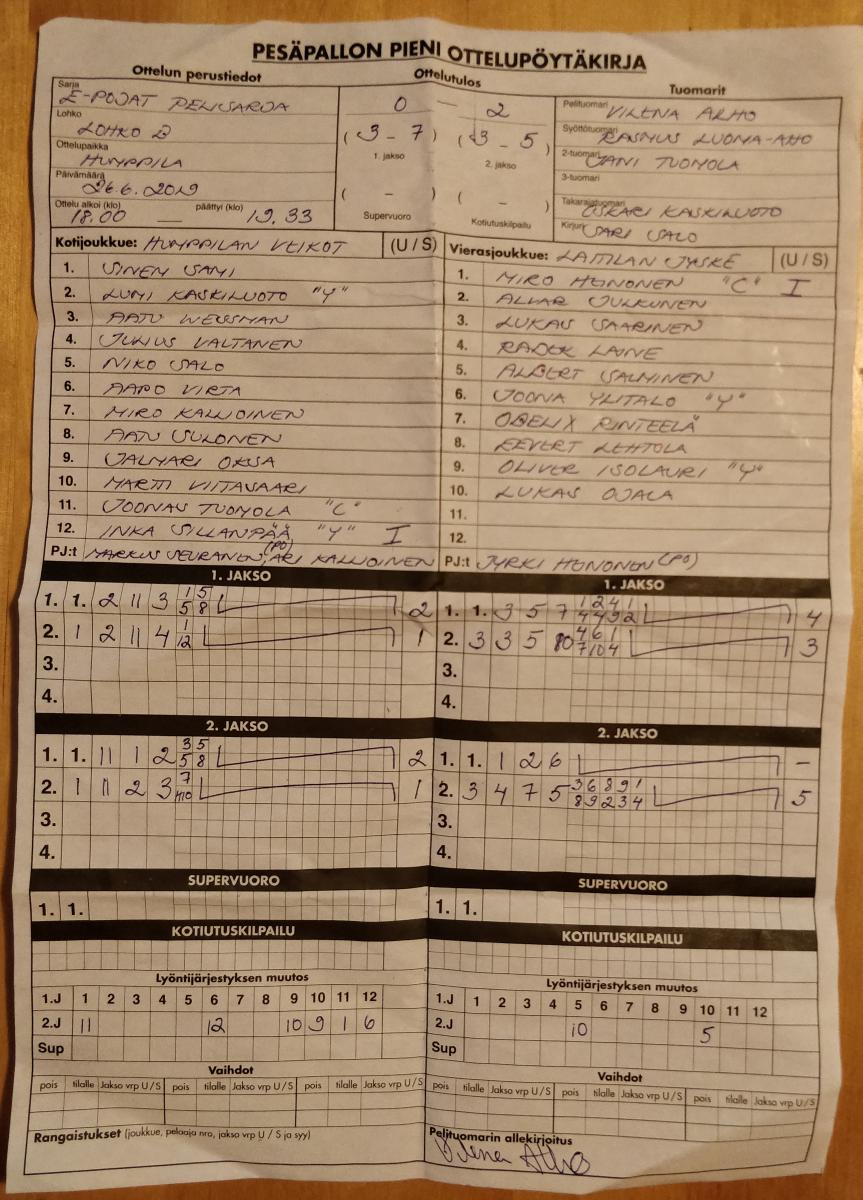 PESÄPALLON PIENI OTTELUPÖYTÄKIRJA
Ottelun perustiedot
Sarja
E-POJAT PELISARJA
Lohko
LOHKO D
Ottelupaikka
HUMPPILA
Päivämäärä
26.6.2019
Ottelu alkoi (klo) päättyi (klo)
18.00 — 19.33
Ottelutulos
0 — 2
(3 - 7) (3 - 5)
1. jakso 2. jakso
( - ) ( - )
Supervuoro Kotiutuskilpailu
Tuomarit
Pelituomari VILENA ALHO
Syöttötuomari RASMUS LUOMA-AHO
2-tuomari JANI TUOMOLA
3-tuomari
Takarajatuomari OSKARI KASKILUOTO
Kirjuri SARI SALO
Kotijoukkue: HUMPPILAN VEIKOT (U / S)
1. SINEM SAMI
2. LUMI KASKILUOTO "Y"
3. AATU WESSMAN
4. JULIUS VALTANEN
5. NIKO SALO
6. AAPO VIRTA
7. MIRO KALLIOINEN
8. AATU SULONEN
9. JALMARI OKSA
10. MARTTI VIITASAARI
11. JOONAS TUOMOLA "C"
12. INKA SILLANPÄÄ "Y" I
PJ:t MARKUS SEURANEN (PO), ARI KALLIOINEN
Vierasjoukkue: LAITILAN JYSKE (U / S)
1. MIRO HONONEN "C" I
2. ALVAR JULKUNEN
3. LUKAS SAARINEN
4. RADEK LAINE
5. ALBERT SALMINEN
6. JOONA YLITALO "Y"
7. OBELIX RINTEELÄ
8. EEVERT LEHTOLA
9. OLIVER ISOLAURI "Y"
10. LUKAS OJALA
11.
12.
PJ:t JYRKI HONONEN (PO)
1. JAKSO
1. 1. 2 11 3 1 5 2
5 8
2. 1 2 11 4 1 1
12
3.
4.
1. JAKSO
1. 1. 3 5 7 1 2 4 1 4
4 4 9 2
2. 3 3 5 10 4 6 1 3
7 10 4
3.
4.
2. JAKSO
1. 1. 11 1 2 3 5 2
5 8
2. 1 11 2 3 7 1
10
3.
4.
2. JAKSO
1. 1. 1 2 6 –
2. 3 4 7 5 3 6 8 9 1 5
8 9 2 3 4
3.
4.
SUPERVUORO
1. 1.
SUPERVUORO
1. 1.
KOTIUTUSKILPAILU
KOTIUTUSKILPAILU
Lyöntijärjestyksen muutos
1.J 1 2 3 4 5 6 7 8 9 10 11 12
2.J 11 12 10 9 1 6
Sup
Lyöntijärjestyksen muutos
1.J 1 2 3 4 5 6 7 8 9 10 11 12
2.J 10 5
Sup
Vaihdot
pois tilalle Jakso vrp U / S pois tilalle Jakso vrp U / S pois tilalle Jakso vrp U / S
Vaihdot
pois tilalle Jakso vrp U / S pois tilalle Jakso vrp U / S pois tilalle Jakso vrp U / S
Rangaistukset (joukkue, pelaaja nro, jakso vrp U / S ja syy)
Pelituomarin allekirjoitus
Vilena Alho